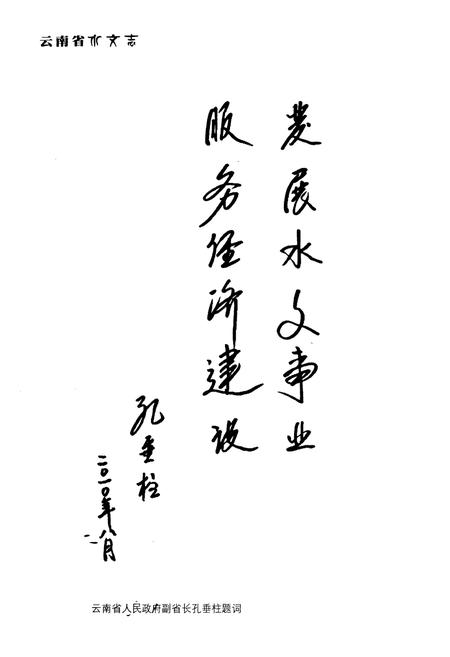 云南省水文志
发展水文事业
服务经济建设
孔垂柱
二〇一〇年八月
云南省人民政府副省长孔垂柱题词